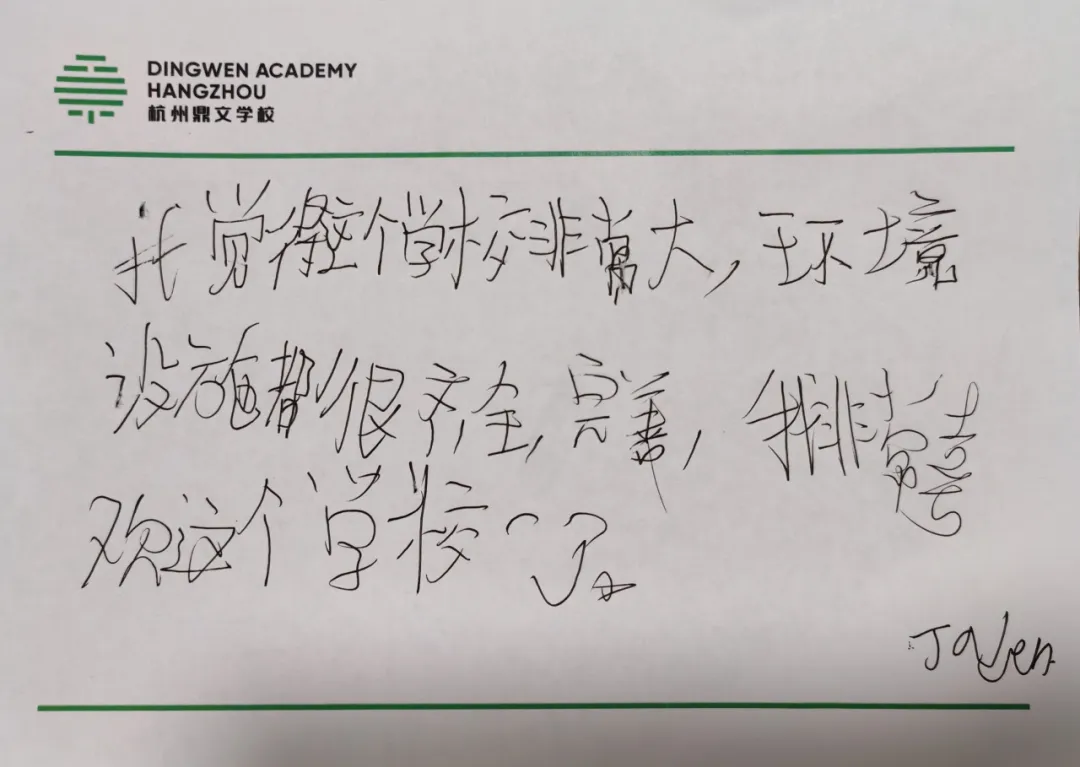 DINGWEN ACADEMY
HANGZHOU
杭州鼎文学校
我觉得这个学校非常大，环境
设施都很齐全，完善，我非常喜
欢这个学校
Jayen